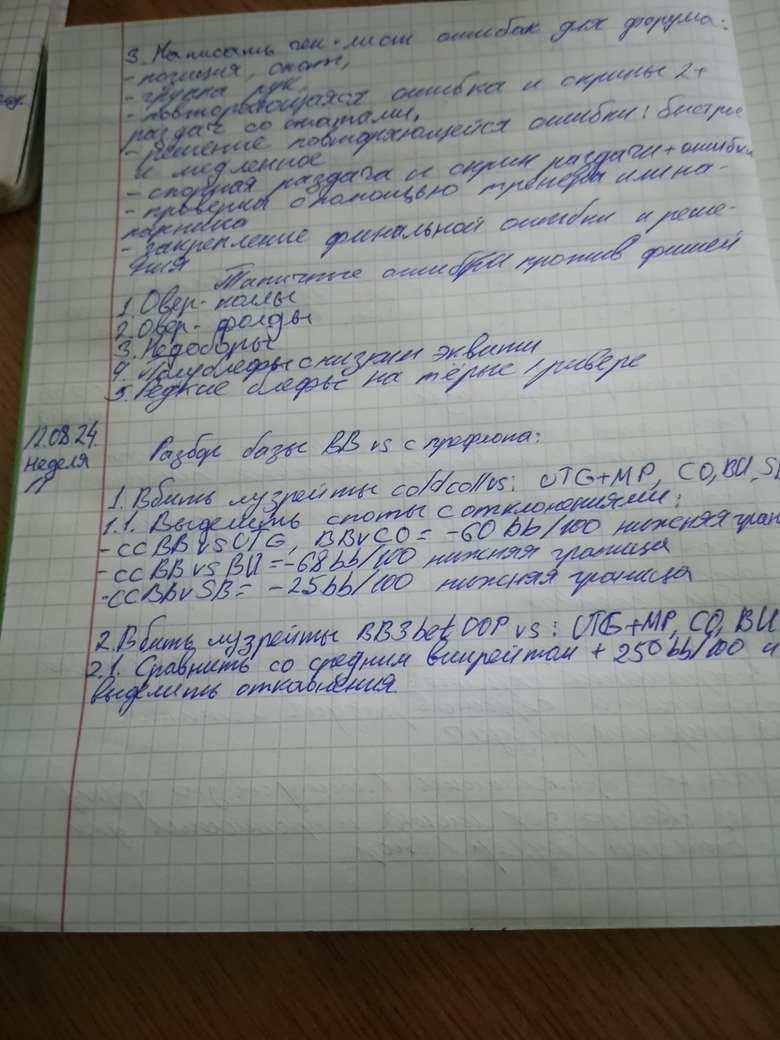 3. Написать чек-лист ошибок для форума:
- позиция, спот,
- группа рук,
- повторяющаяся ошибка и скрины 2+
раздач со статами,
- решение повторяющейся ошибки: быстрое
и медленное
- спорная раздача и скрин раздачи + ошибки
- проверка с помощью тренера или на-
парника
- закрепление финальной ошибки и реше-
ния
Типичные ошибки против фишей
1. Овер-коллы
2. Овер-фолды
3. Недоборы
4. Полублефы с низким эквити
5. Редкие блефы на тёрне / ривере
12.08.24
Неделя
11
Разбор базы BB vs с префлопа:
1. Вбить лузрейты coldcoll vs: UTG+MP, CO, BU, SB
1.1. Выделить споты с отклонениями:
- CC BB vs UTG, BBvCO = -60 bb/100 нижняя гран
- CC BB vs BU = -68 bb/100 нижняя граница
- CC BBvSB = -25 bb/100 нижняя граница
2. Вбить лузрейты BB3bet OOP vs: UTG+MP, CO, BU
2.1. Сравнить со средним винрейтом + 250 bb/100 и
выделить отклонения